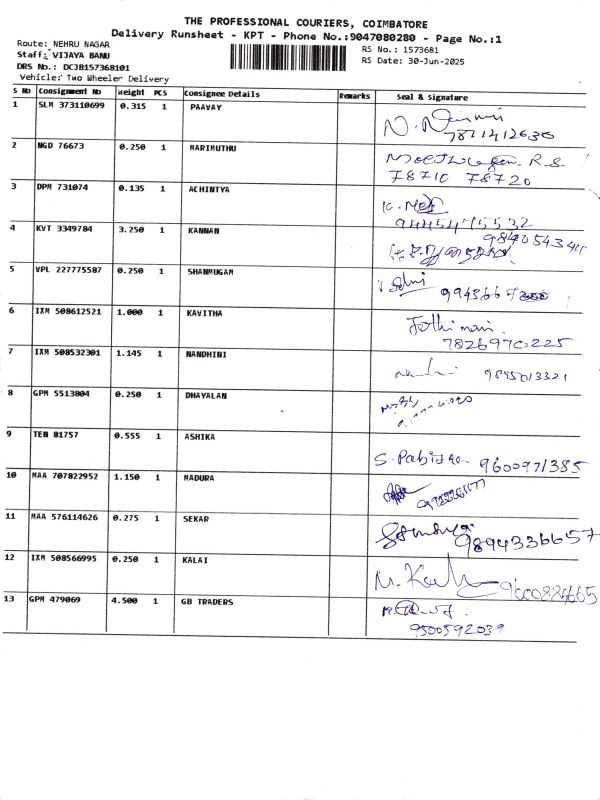 THE PROFESSIONAL COURIERS, COIMBATORE
Delivery Runsheet - KPT - Phone No.:9047080280 - Page No.:1
Route: NEHRU NAGAR
Staff: VIJAYA BANU
DRS No.: DCJB1573681O1
Vehicle: Two Wheeler Delivery
RS No.: 1573681
RS Date: 30-Jun-2025
S No Consignment No Weight PCS Consignee Details Remarks Seal & Signature
1 SLM 373110699 0.315 1 PAAVAY
2 NGD 76673 0.250 1 MARIMUTHU R.S.
78710 78720
3 DPM 731074 0.135 1 ACHINTYA
9445475532
4 KVT 3349784 3.250 1 KANNAN
5 VPL 227775587 0.250 1 SHANMUGAM
6 IXM 508612521 1.000 1 KAVITHA Jothimani.
7826970225
7 IXM 508532301 1.145 1 NANDHINI 9845013321
8 GPM 5513804 0.250 1 DHAYALAN
9 TEN 81757 0.555 1 ASHIKA 9600971385
10 MAA 707822952 1.150 1 MADURA
11 MAA 576114626 0.275 1 SEKAR 9894336657
12 IXM 508566995 0.250 1 KALAI 9600884665
13 GPM 479069 4.500 1 GB TRADERS
9500592039